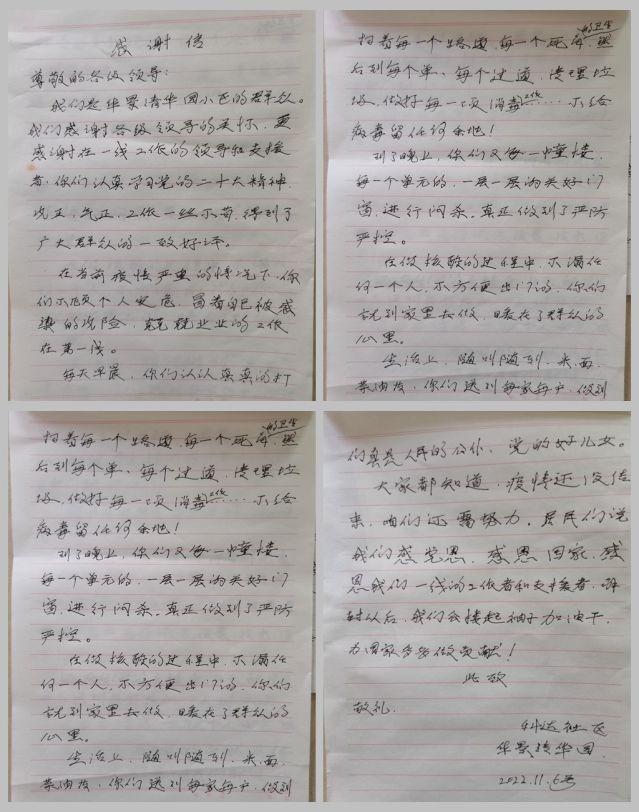 感谢信
尊敬的各级领导：
我们是华景清华园小区的群众。
我们感谢各级领导的关怀，更
感谢在一线工作的领导和支援
者，你们认真学习党的二十大精神，
风正，气正，工作一丝不苟，得到了
广大群众的一致好评。
在当前疫情严重的情况下，你
们不顾个人安危，冒着自己被感
染的风险，兢兢业业的工作
在第一线。
每天早晨，你们认认真真的打
的卫生
扫着每一个路道，每一个死角，然
后到每个单、每个过道，清理垃
圾，做好每一项消毒工作……不给
病毒留任何余地！
到了晚上，你们又每一幢楼，
每一个单元的，一层一层的关好门
窗，进行闷杀。真正做到了严防
严控。
在做核酸的过程中，不漏任
何一个人，不方便出门的，你们
就到家里去做，暖在了群众的
心里。
生活上，随叫随到，米、面、
菜油等，你们送到每家每户，做到
的卫生
扫着每一个路道，每一个死角，然
后到每个单、每个过道，清理垃
圾，做好每一项消毒工作……不给
病毒留任何余地！
到了晚上，你们又每一幢楼，
每一个单元的，一层一层的关好门
窗，进行闷杀。真正做到了严防
严控。
在做核酸的过程中，不漏任
何一个人，不方便出门的，你们
就到家里去做，暖在了群众的
心里。
生活上，随叫随到，米、面、
菜油等，你们送到每家每户，做到
们真是人民的公仆、党的好儿女。
大家都知道，疫情还没结
束，咱们还需努力，居民们说
我们感党恩，感恩国家，感
恩我们一线的工作者和支援者，解
封以后，我们会撸起袖子加油干，
为国家多多做贡献！
此致
敬礼
科达社区
华景清华园
2022.11.6号